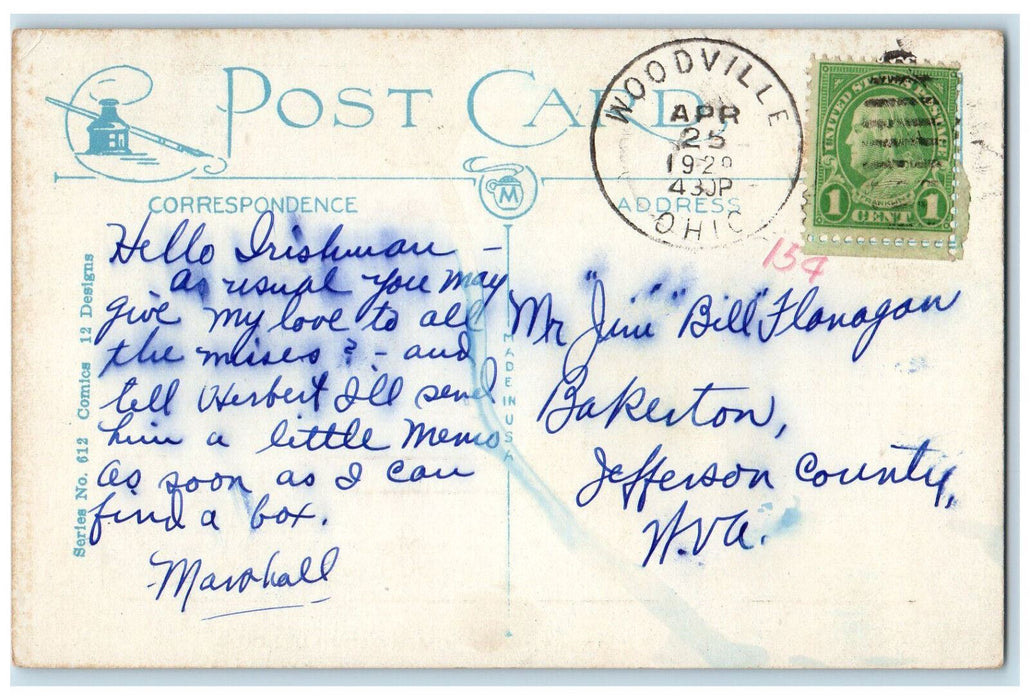 POST CARD
WOODVILLE
APR
25
1929
430P
OHIO
UNITED STATES POSTAGE
FRANKLIN
1 CENT 1
M
CORRESPONDENCE
ADDRESS
154
Hello Irishman –
as usual you may
give my love to all
the mises? – and
tell Herbert I'll send
him a little Memo
as soon as I can
find a box.
Marshall
Mr "Jim" "Bill" Flanagan
Bakerton,
Jefferson County,
W.Va.
MADE IN USA
Series No. 612 Comics 12 Designs